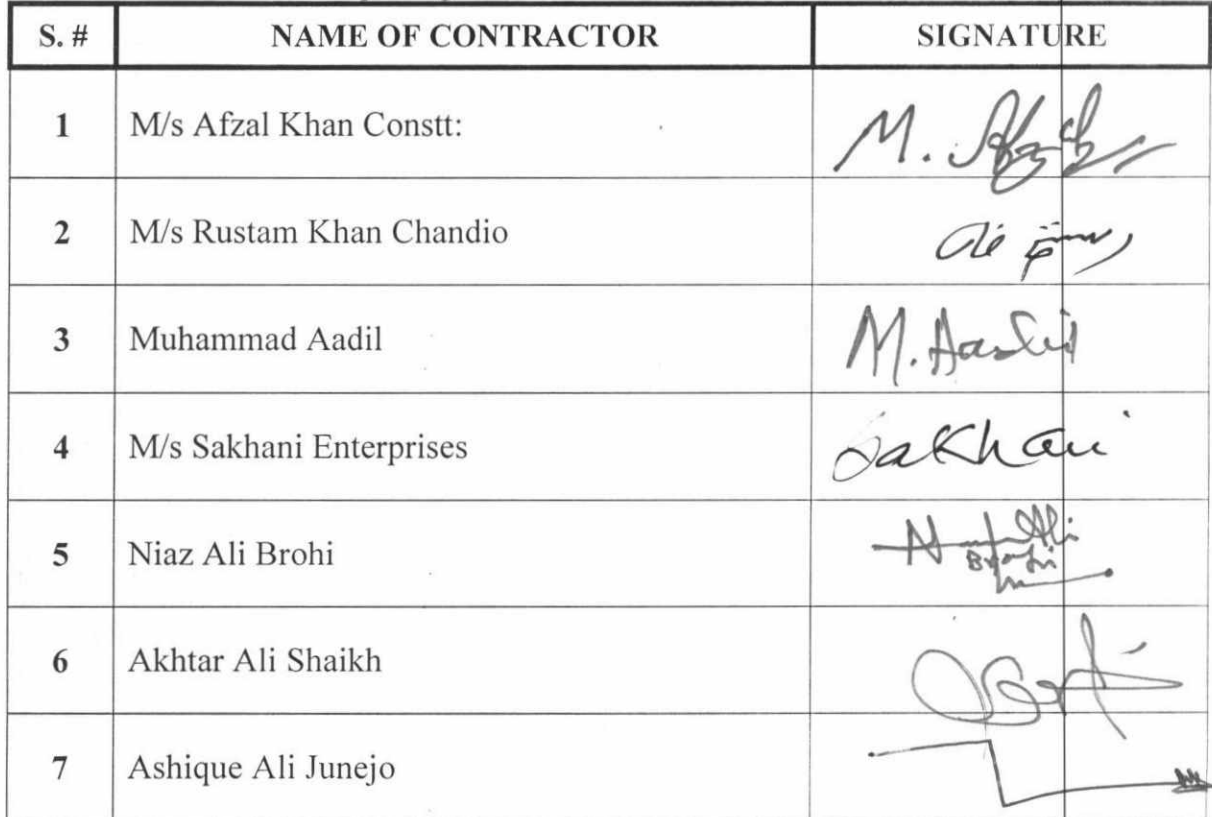 S. # NAME OF CONTRACTOR SIGNATURE
1 M/s Afzal Khan Constt: M.
2 M/s Rustam Khan Chandio
3 Muhammad Aadil M. Aadil
4 M/s Sakhani Enterprises Sakhani
5 Niaz Ali Brohi Ali
Brohi
6 Akhtar Ali Shaikh
7 Ashique Ali Junejo